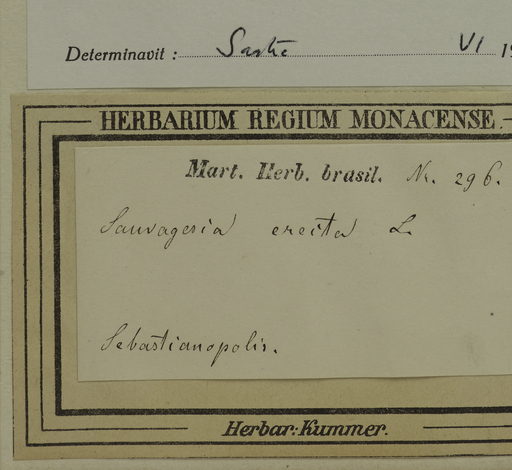 Determinavit : Sastre VI 19
HERBARIUM REGIUM MONACENSE.
Mart. Herb. brasil. Nr. 296.
Sauvagesia erecta L.
Sebastianopolis.
Herbar: Kummer.